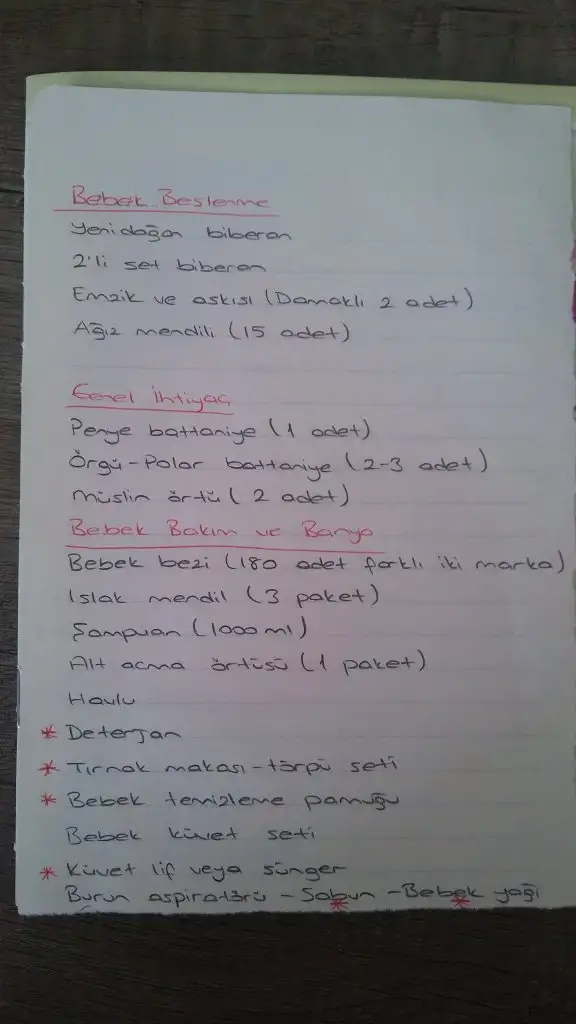 Bebek Beslenme
Yenidoğan biberon
2'li set biberon
Emzik ve askısı (Damaklı 2 adet)
Ağız mendili (15 adet)
Genel İhtiyaç
Penye battaniye (1 adet)
Örgü-Polar battaniye (2-3 adet)
Müslin örtü (2 adet)
Bebek Bakım ve Banyo
Bebek bezi (180 adet farklı iki marka)
Islak mendil (3 paket)
Şampuan (1000 ml)
Alt açma örtüsü (1 paket)
Havlu
* Deterjan
* Tırnak makası-törpü seti
* Bebek temizleme pamuğu
Bebek küvet seti
* Küvet lif veya sünger
Burun aspiratörü - Sabun - Bebek yağı
* *